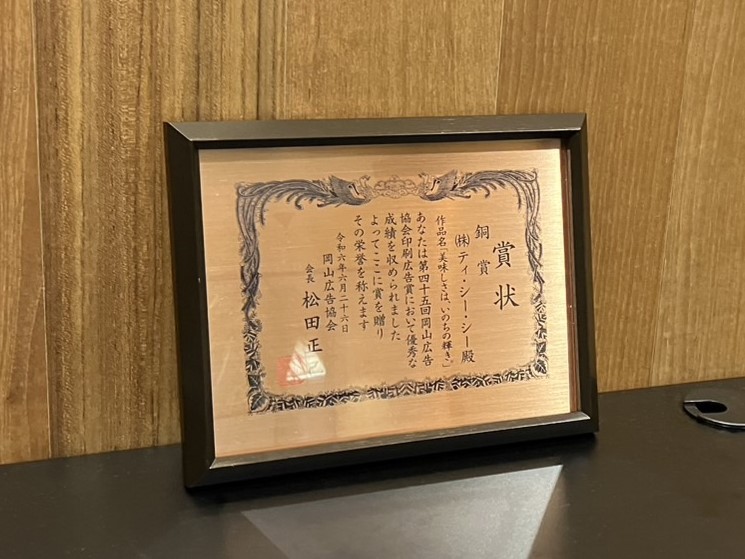 賞状
銅賞
㈱ティ・シー・シー殿
作品名「美味しさは、いのちの輝き」
あなたは第四十五回岡山広告
協会印刷広告賞において優秀な
成績を収められました
よってここに賞を贈り
その栄誉を称えます
令和六年六月二十六日
岡山広告協会
会長 松田正